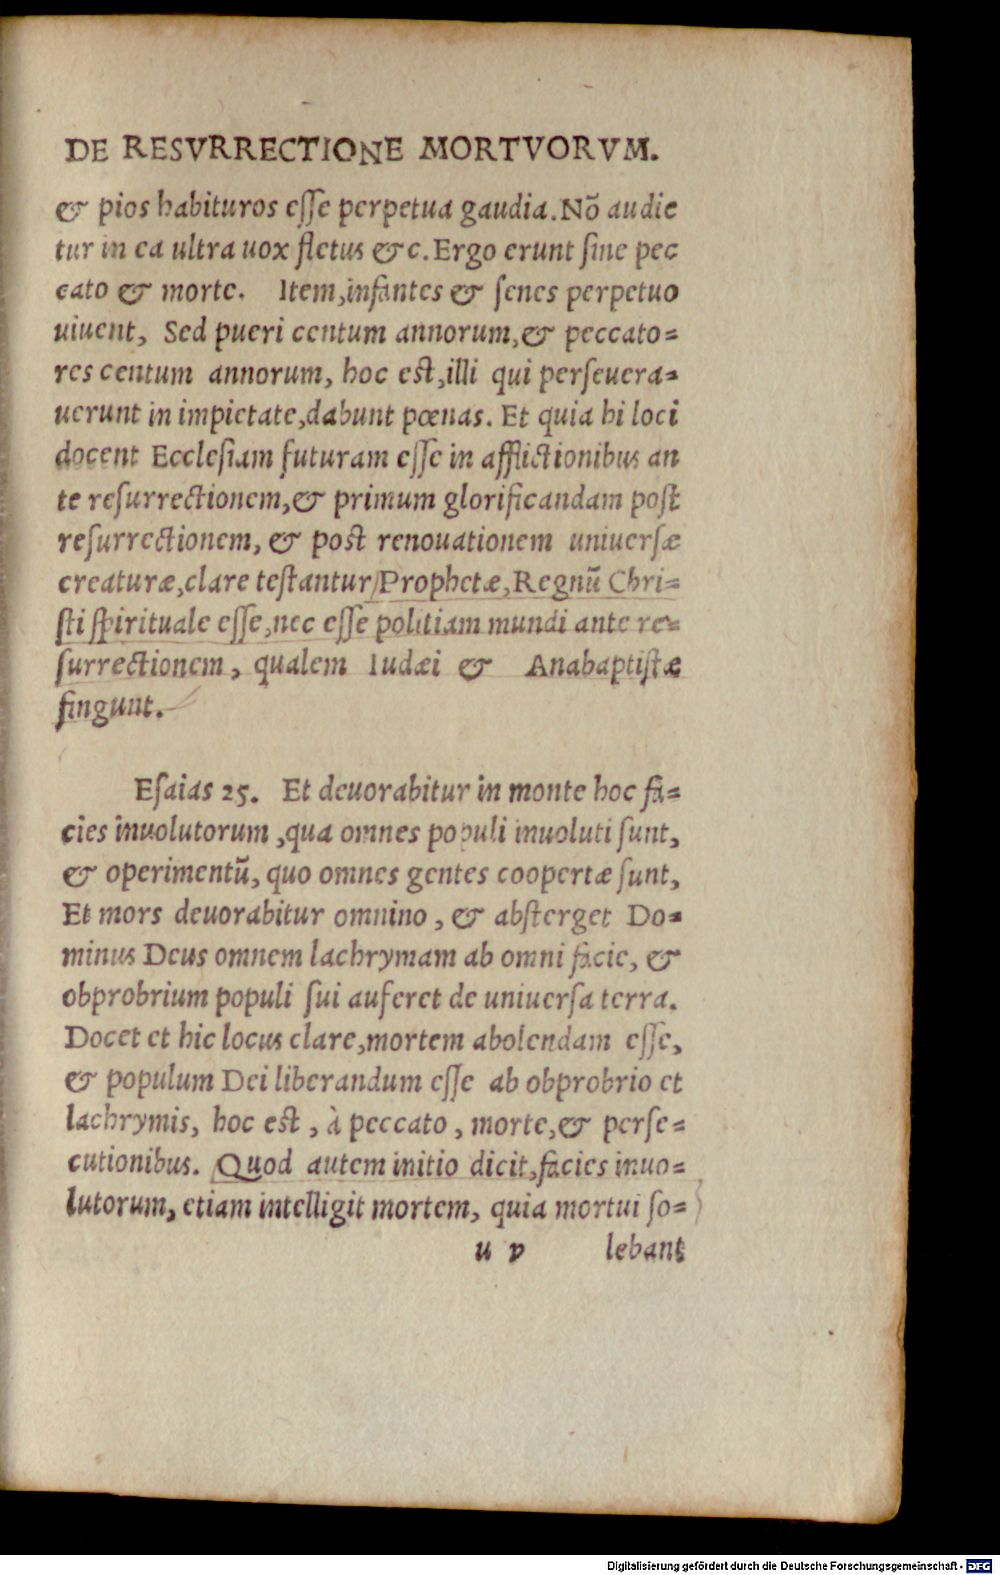 DE RESVRRECTIONE MORTVORVM.
& pios habituros esse perpetua gaudia. Nõ audie
tur in ea ultra uox fletus &c. Ergo erunt sine pec
cato & morte. Item, infantes & senes perpetuo
uiuent, Sed pueri centum annorum, & peccato=
res centum annorum, hoc est, illi qui perseuera=
uerunt in impietate, dabunt pœnas. Et quia hi loci
docent Ecclesiam futuram esse in afflictionibus an
te resurrectionem, & primum glorificandam post
resurrectionem, & post renouationem uniuersæ
creaturæ, clare testantur Prophetæ, Regnũ Chri=
sti spirituale esse, nec esse politiam mundi ante re=
surrectionem, qualem Iudæi & Anabaptistæ
fingunt.
Esaias 25. Et deuorabitur in monte hoc fa=
cies inuolutorum, qua omnes populi inuoluti sunt,
& operimentũ, quo omnes gentes coopertæ sunt,
Et mors deuorabitur omnino, & absterget Do=
minus Deus omnem lachrymam ab omni facie, &
obprobrium populi sui auferet de uniuersa terra.
Docet et hic locus clare, mortem abolendam esse,
& populum Dei liberandum esse ab obprobrio et
lachrymis, hoc est, à peccato, morte, & perse=
cutionibus. Quod autem initio dicit, facies inuo=
lutorum, etiam intelligit mortem, quia mortui so=
u v lebant
Digitalisierung gefördert durch die Deutsche Forschungsgemeinschaft - DFG